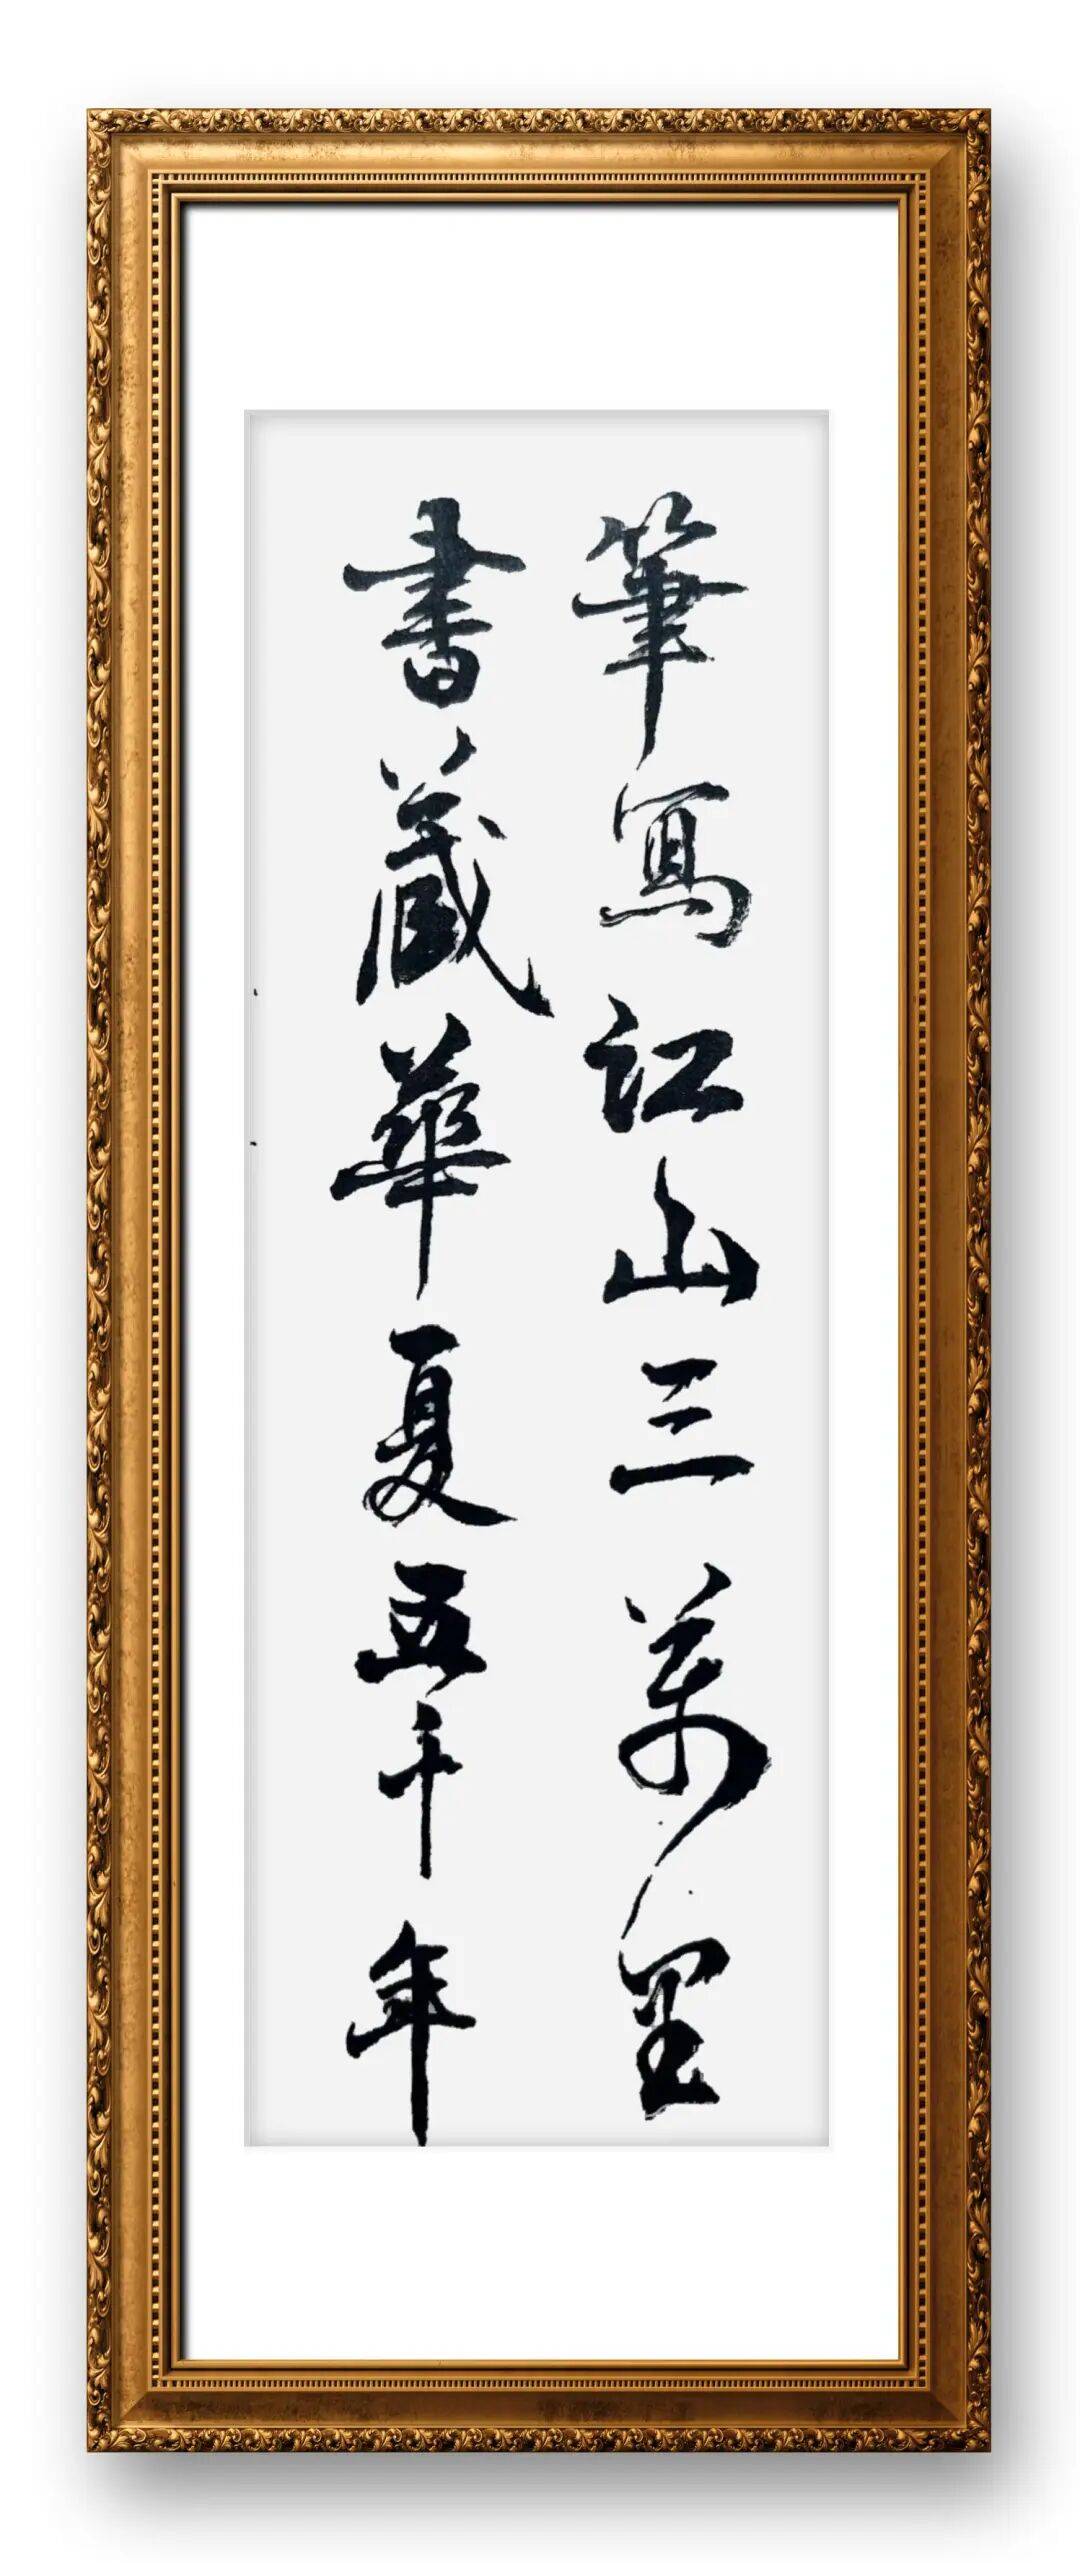 筆寫江山三萬里
書藏華夏五千年